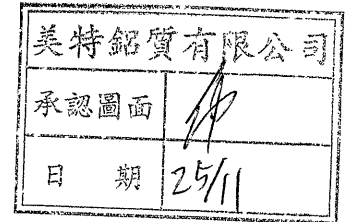 美特鋁質有限公司
承認圖面
日期 25/11